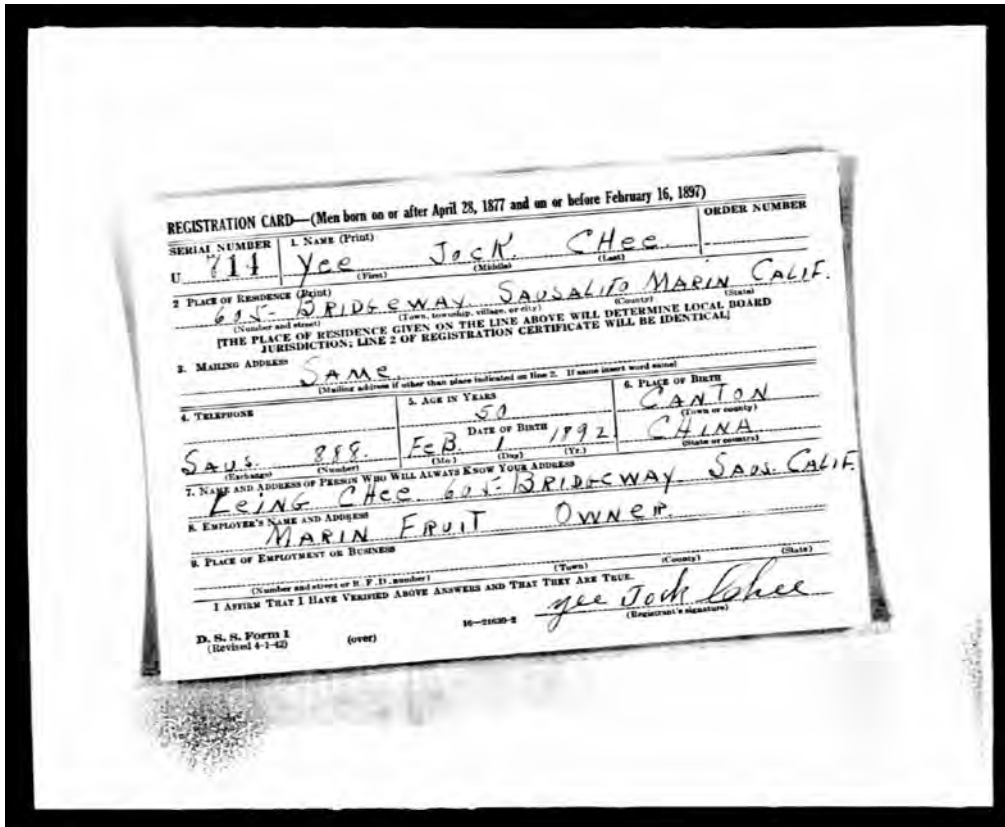 REGISTRATION CARD—(Men born on or after April 28, 1877 and on or before February 16, 1897)
SERIAL NUMBER 1. NAME (Print) ORDER NUMBER
U 714 Yee Jock CHee
(First) (Middle) (Last)
2 PLACE OF RESIDENCE (Print)
605- BRIDGEWAY SAUSALITO MARIN CALIF.
(Number and street) (Town, township, village, or city) (County) (State)
[THE PLACE OF RESIDENCE GIVEN ON THE LINE ABOVE WILL DETERMINE LOCAL BOARD
JURISDICTION; LINE 2 OF REGISTRATION CERTIFICATE WILL BE IDENTICAL]
3. MAILING ADDRESS
SAMe
(Mailing address if other than place indicated on line 2. If same insert word same)
4. TELEPHONE 5. AGE IN YEARS 6. PLACE OF BIRTH
50 CANTON
DATE OF BIRTH (Town or county)
SAUS. 888. FeB. 1 1892 CHINA
(Exchange) (Number) (Mo.) (Day) (Yr.) (State or country)
7. NAME AND ADDRESS OF PERSON WHO WILL ALWAYS KNOW YOUR ADDRESS
LeiNG CHee 605- BRIDGEWAY SAUS. CALIF.
8. EMPLOYER'S NAME AND ADDRESS
MARIN FRUIT OWNeR
9. PLACE OF EMPLOYMENT OR BUSINESS
(Number and street or R. F. D. number) (Town) (County) (State)
I AFFIRM THAT I HAVE VERIFIED ABOVE ANSWERS AND THAT THEY ARE TRUE.
yee Jock Chee
D. S. S. Form 1 16—21630-2 (Registrant's signature)
(Revised 4-1-42) (over)